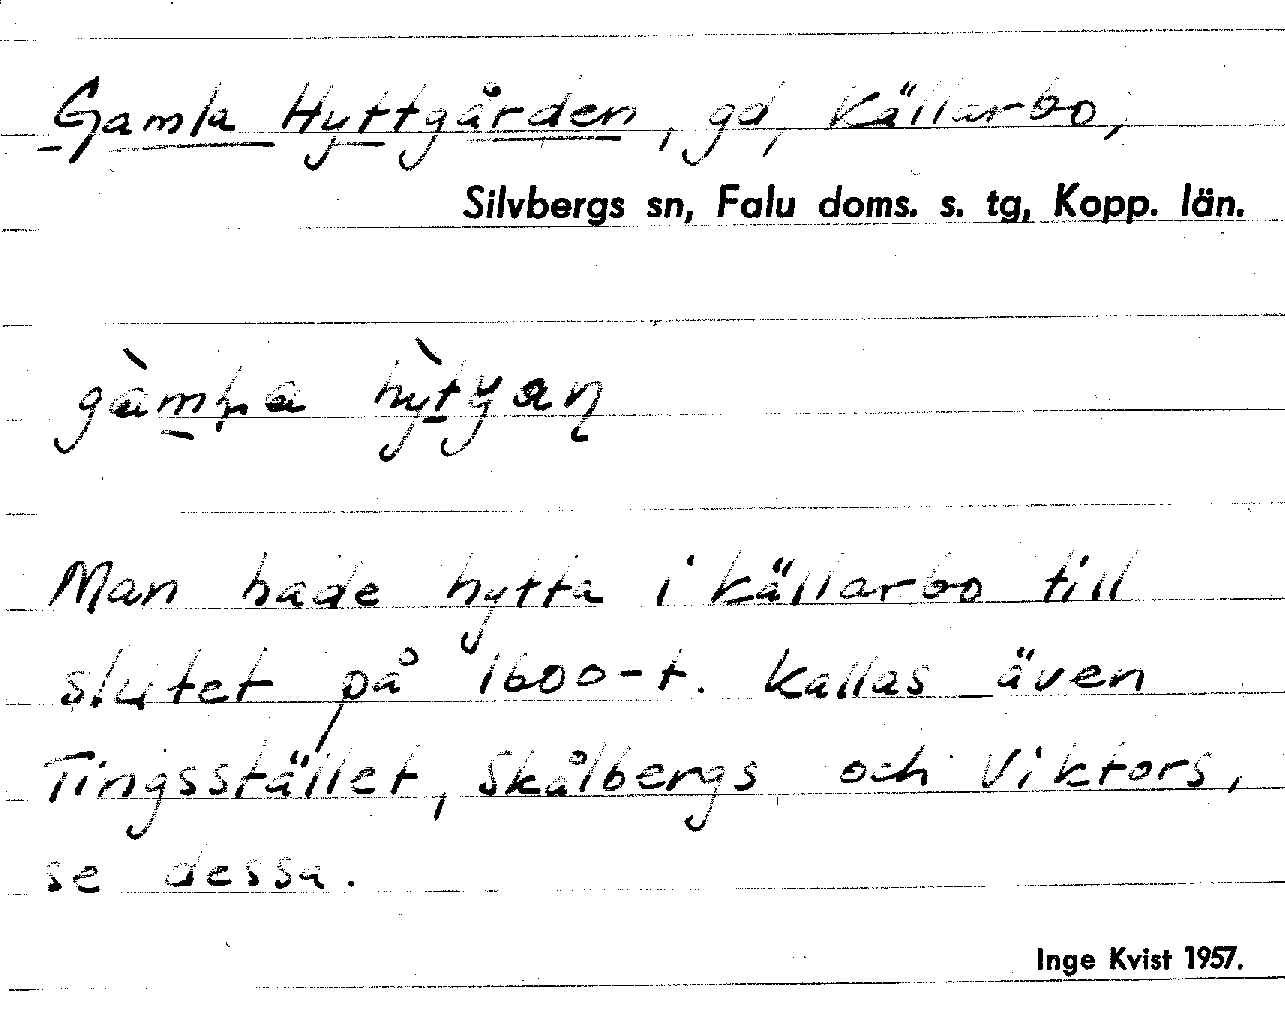 Gamla Hyttgården, gd, Källarbo,
Silvbergs sn, Falu doms. s. tg, Kopp. län.
Man hade hytta i Källarbo till
slutet på 1600-t. Kallas även
Tingsstället, Skålbergs och Viktors,
se dessa.
Inge Kvist 1957.